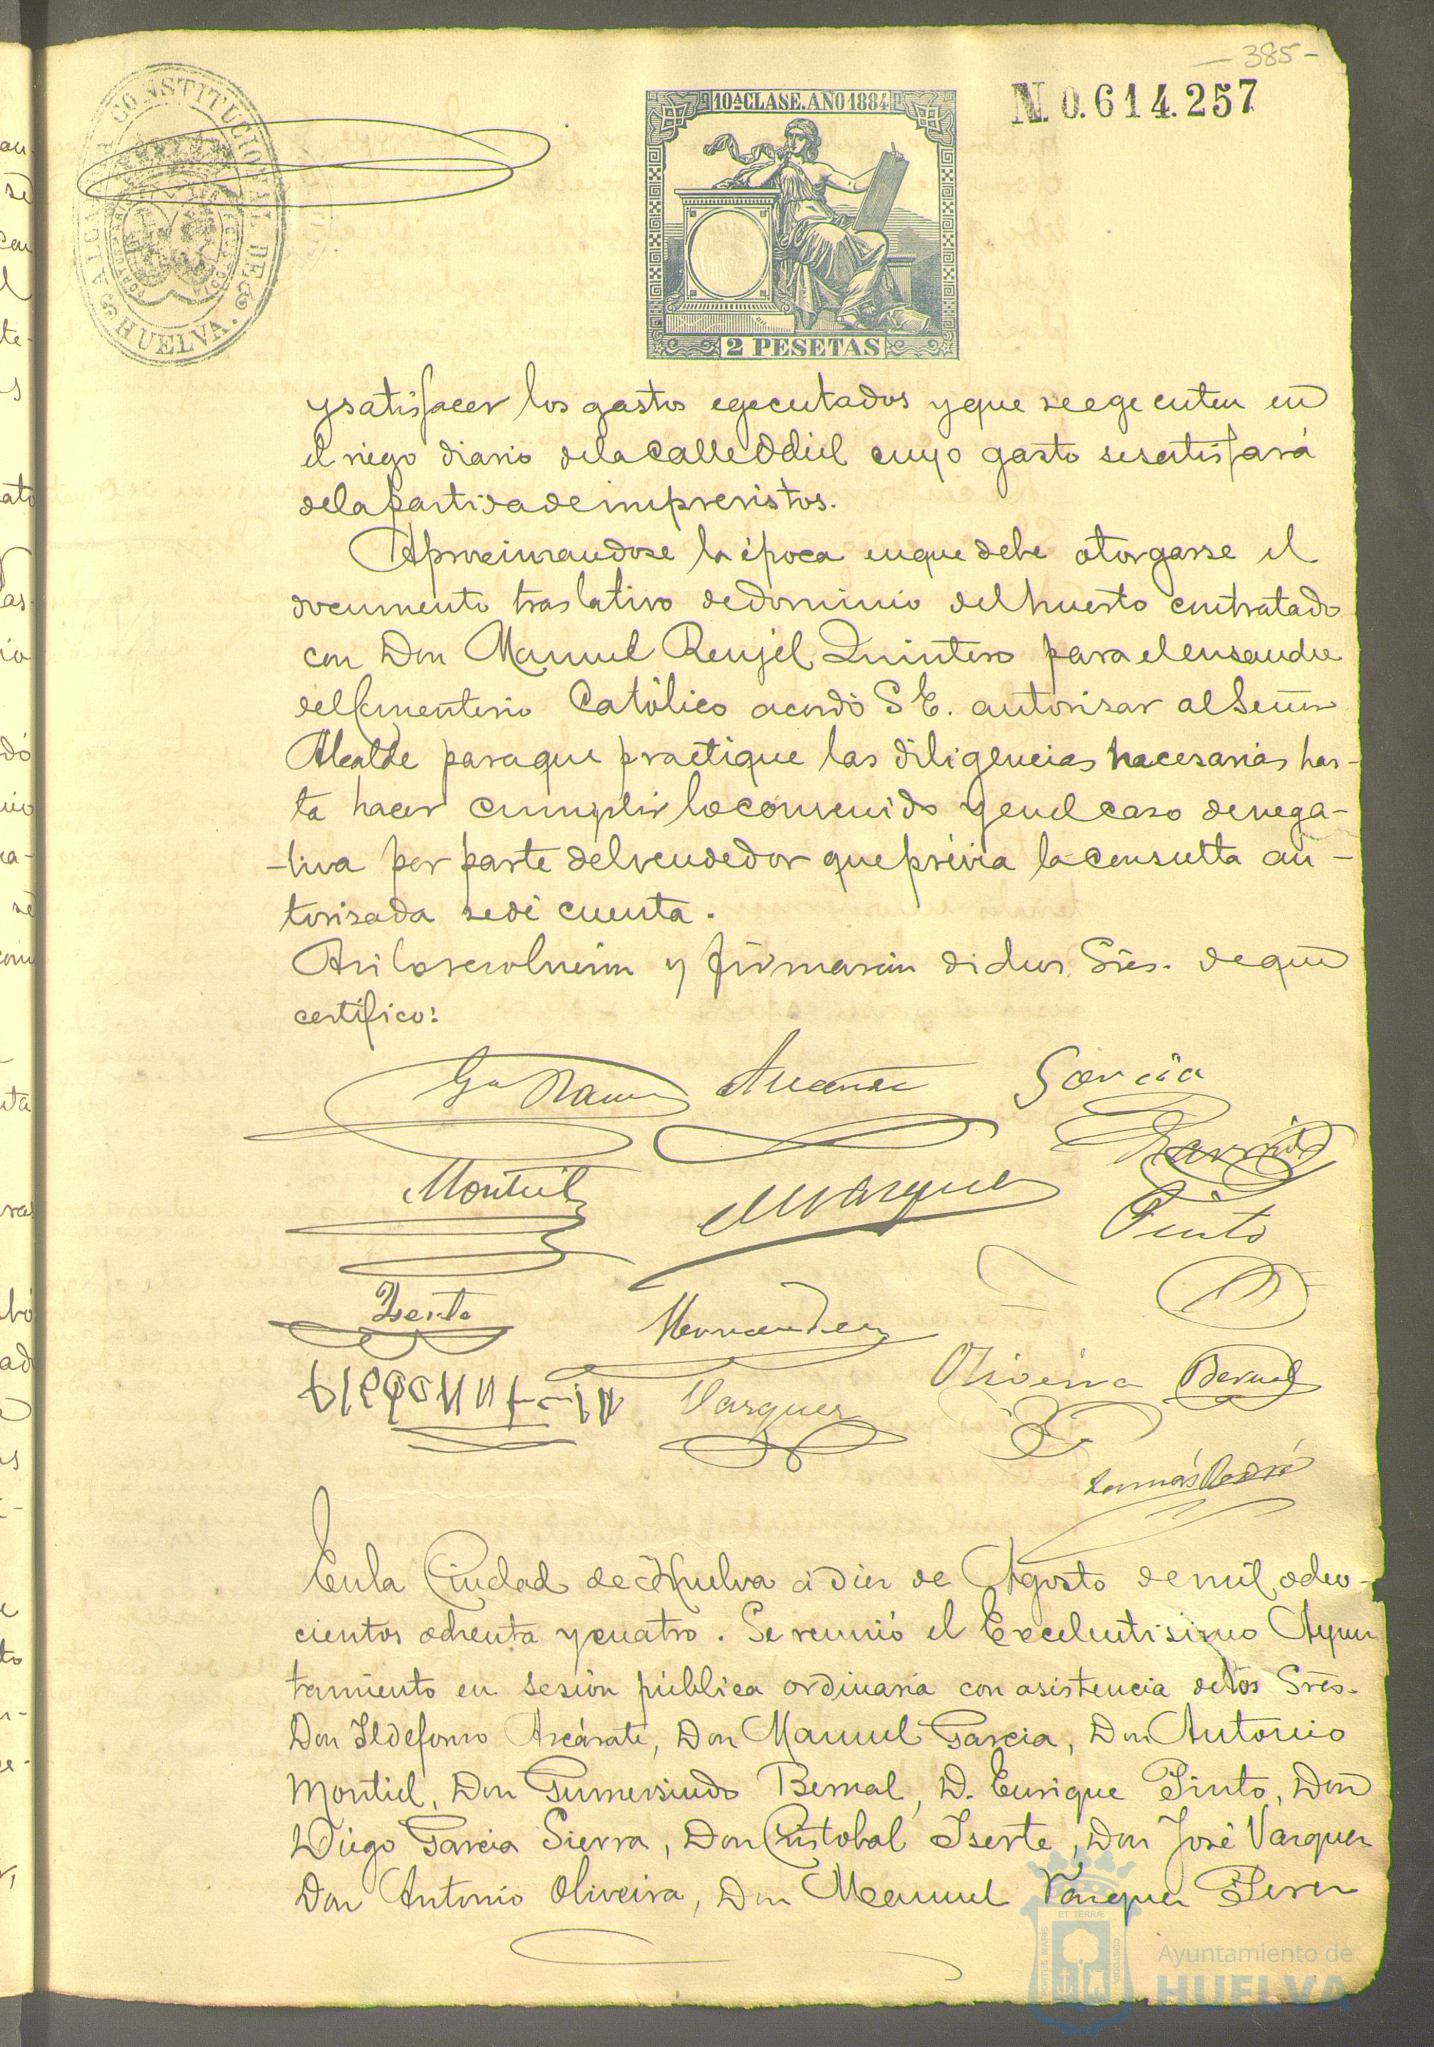 -385-
ALCALDIA CONSTITUCIONAL DE HUELVA.
10ª CLASE. AÑO 1884
N. 0.614.257
2 PESETAS
y satisfacer los gastos egecutados y que se egecuten en
el riego diario de la calle Odiel cuyo gasto se satisfará
de la partida de imprevistos.
Aproximandose la época en que debe otorgarse el
documento traslativo de dominio del huerto contratado
con Don Manuel Renjel Quintero para el ensanche
del Cementerio Católico acordó S E. autorizar al Señor
Alcalde para que practique las diligencias nacesarias has-
ta hacer cumplir lo convenido y en el caso de nega-
-tiva por parte del vendedor que prévia la consulta au-
torizada se dé cuenta.
Asi lo resolvieron y firmarán dichos Sres. de que
certifico:
Garcia
Montiel
Marquez
Garrido
Pinto
Iserte
Hernandez
Oliveira
Bernal
Vazquez
En la Ciudad de Huelva á diez de Agosto de mil ocho-
cientos ochenta y cuatro. Se reunió el Excelentisimo Ayun
tamiento en sesión pública ordinaria con asistencia de los Sres.
Don Ildefonso Azcárate, Don Manuel Garcia, Don Antonio
Montiel, Don Gumersindo Bernal, D. Enrique Pinto, Don
Diego Garcia Sierra, Don Cristobal Iserte, Don José Vazquez
Don Antonio Oliveira, Don Manuel Vazquez Perez
PORTUS MARIS
ET TERRÆ
CUSTODIA
Ayuntamiento de
HUELVA